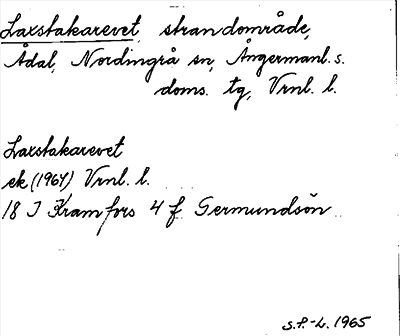 Laxstakarevet, strandområde,
Ådal, Nordingrå sn, Ångermanl. s.
doms. tg, Vrnl. l.
Laxstakarevet
ek (1964) Vrnl. l.
18 I Kramfors 4 f Germundsön
S.P.-L. 1965